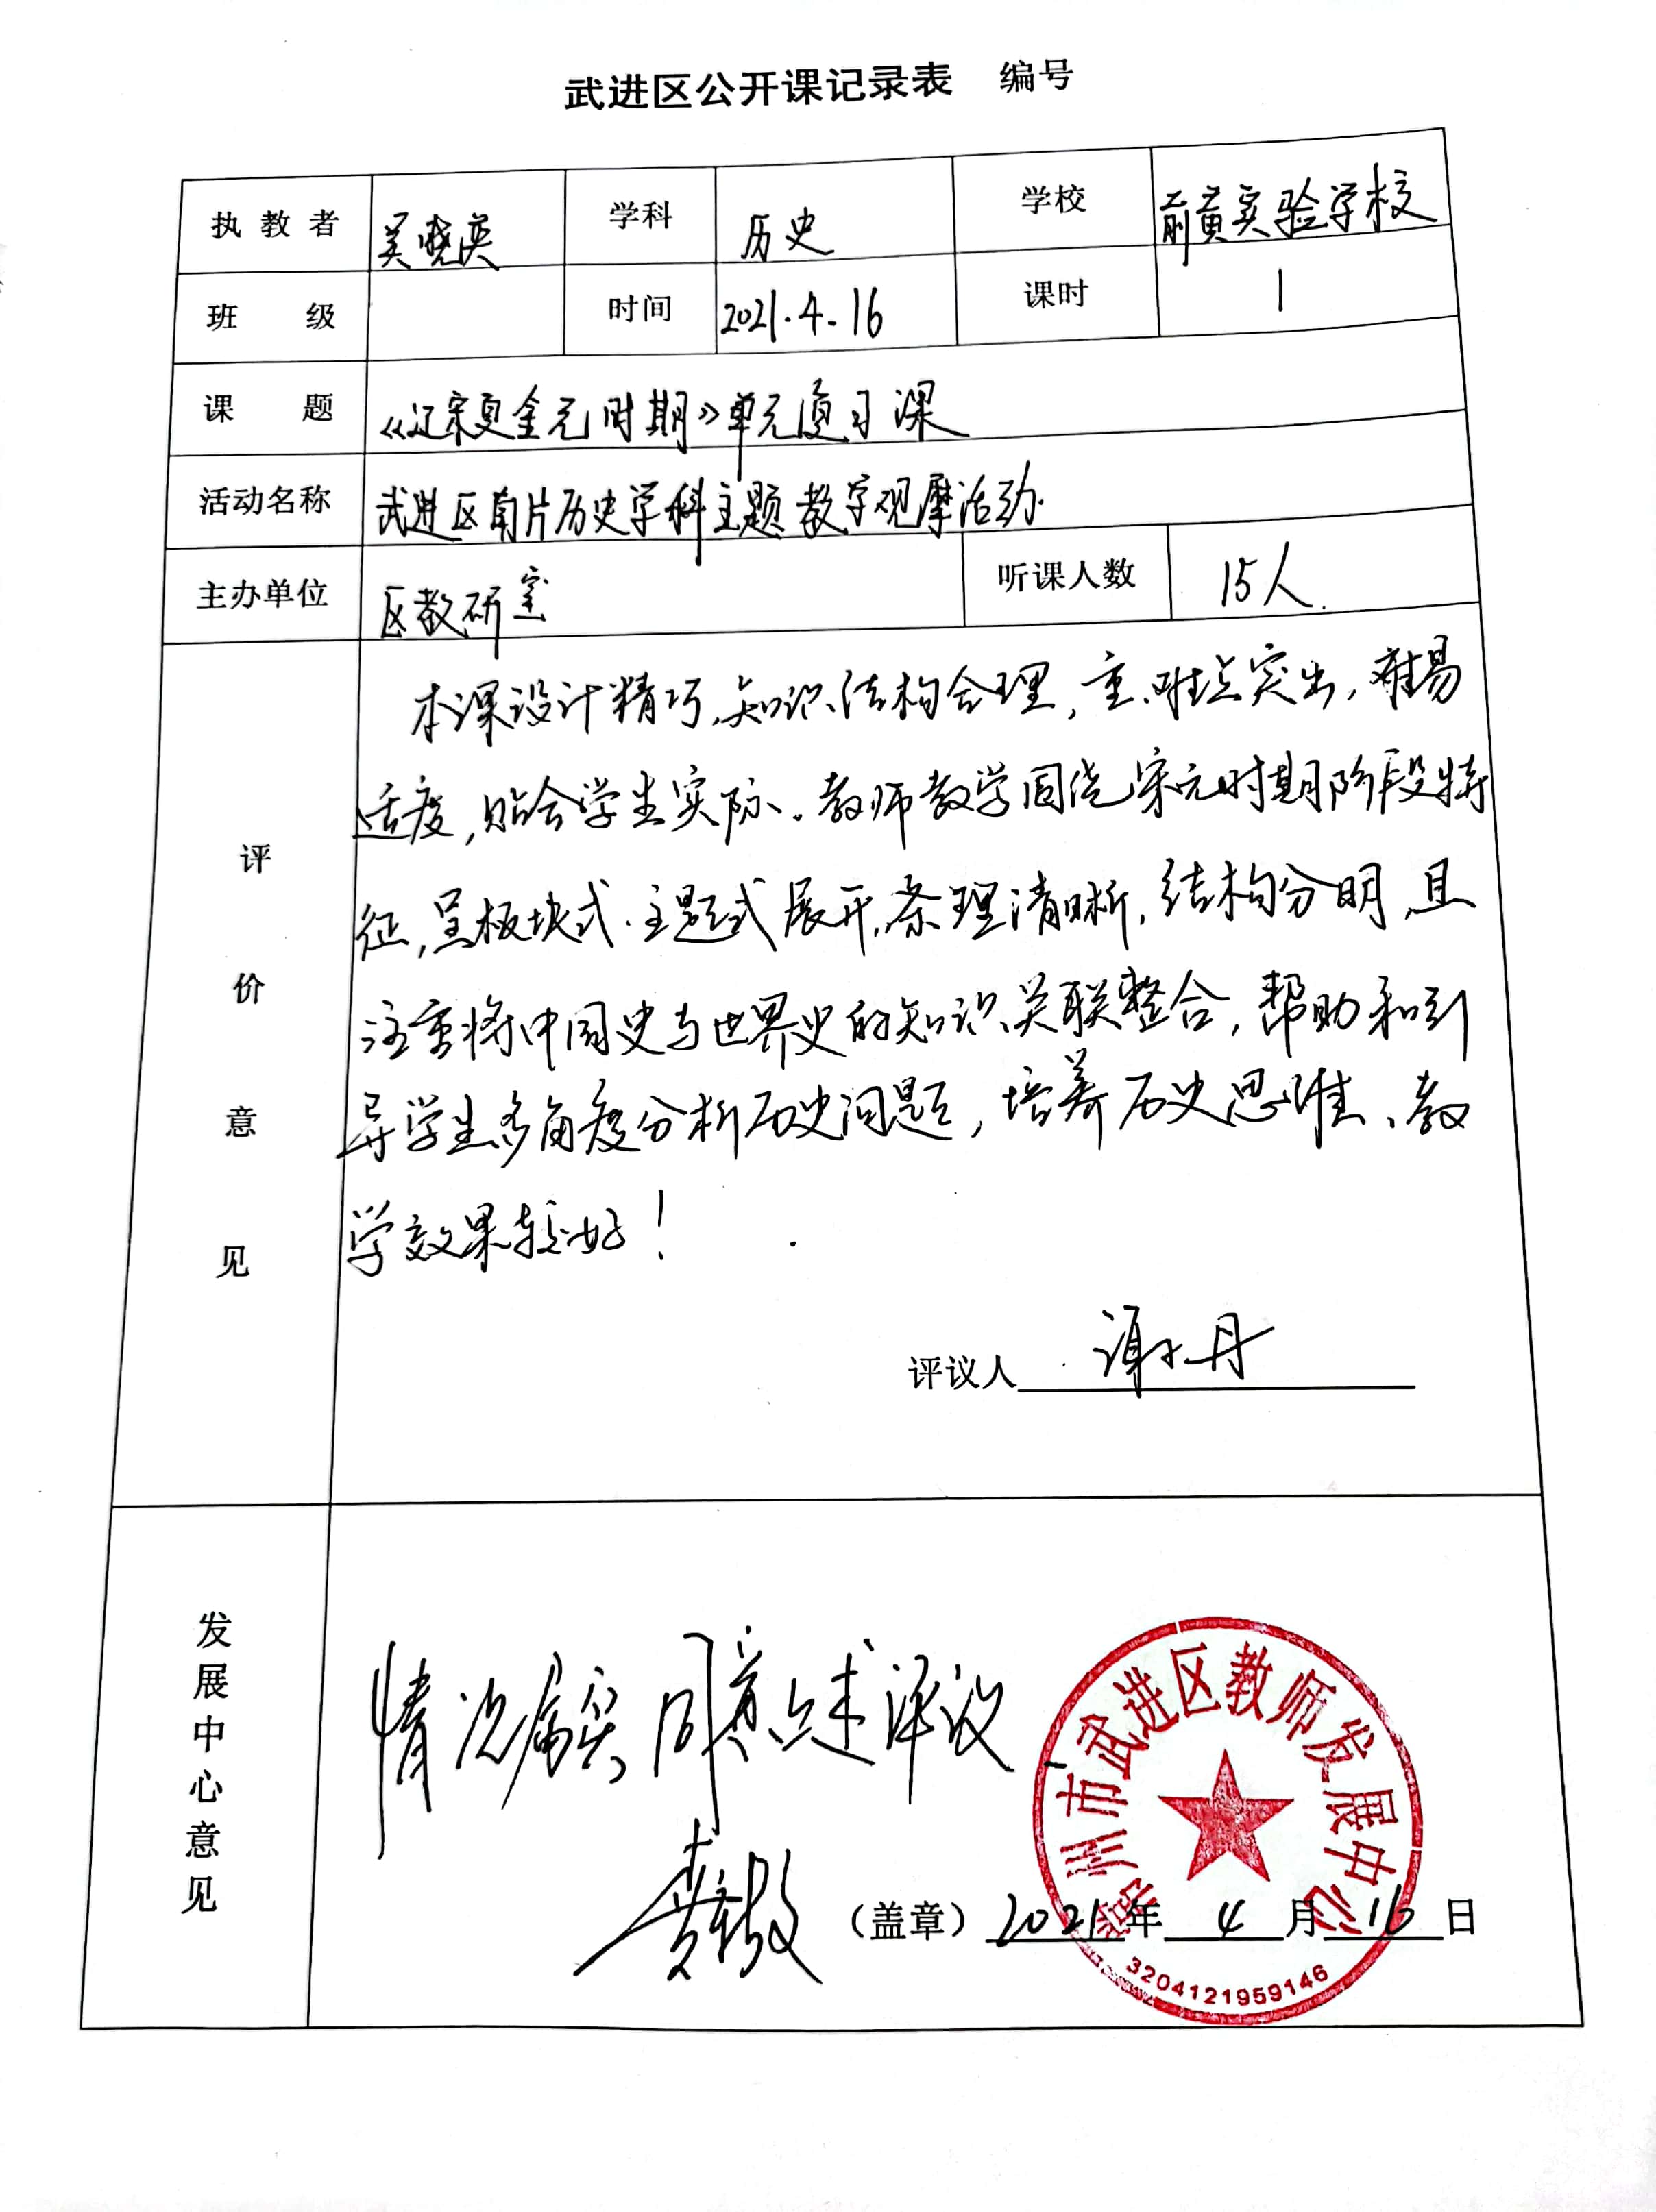 武进区公开课记录表 编号
执教者 吴晓英 学科 历史 学校 前黄实验学校
班级 时间 2021.4.16 课时 1
课题 《辽宋夏金元时期》单元复习课
活动名称 武进区南片历史学科主题教学观摩活动.
主办单位 区教研室 听课人数 15人.
评价意见
本课设计精巧,知识结构合理,重、难点突出,难易
适度,贴合学生实际。教师教学围绕宋元时期阶段特
征,呈板块式、主题式展开,条理清晰,结构分明,且
注重将中国史与世界史的知识关联整合,帮助和引
导学生多角度分析历史问题,培养历史思维、教
学效果较好!
评议人 谢丹
发展中心意见
情况属实 同意上述评议
(盖章) 2021年 4 月 16 日
常州市武进区教师发展中心
3204121959146